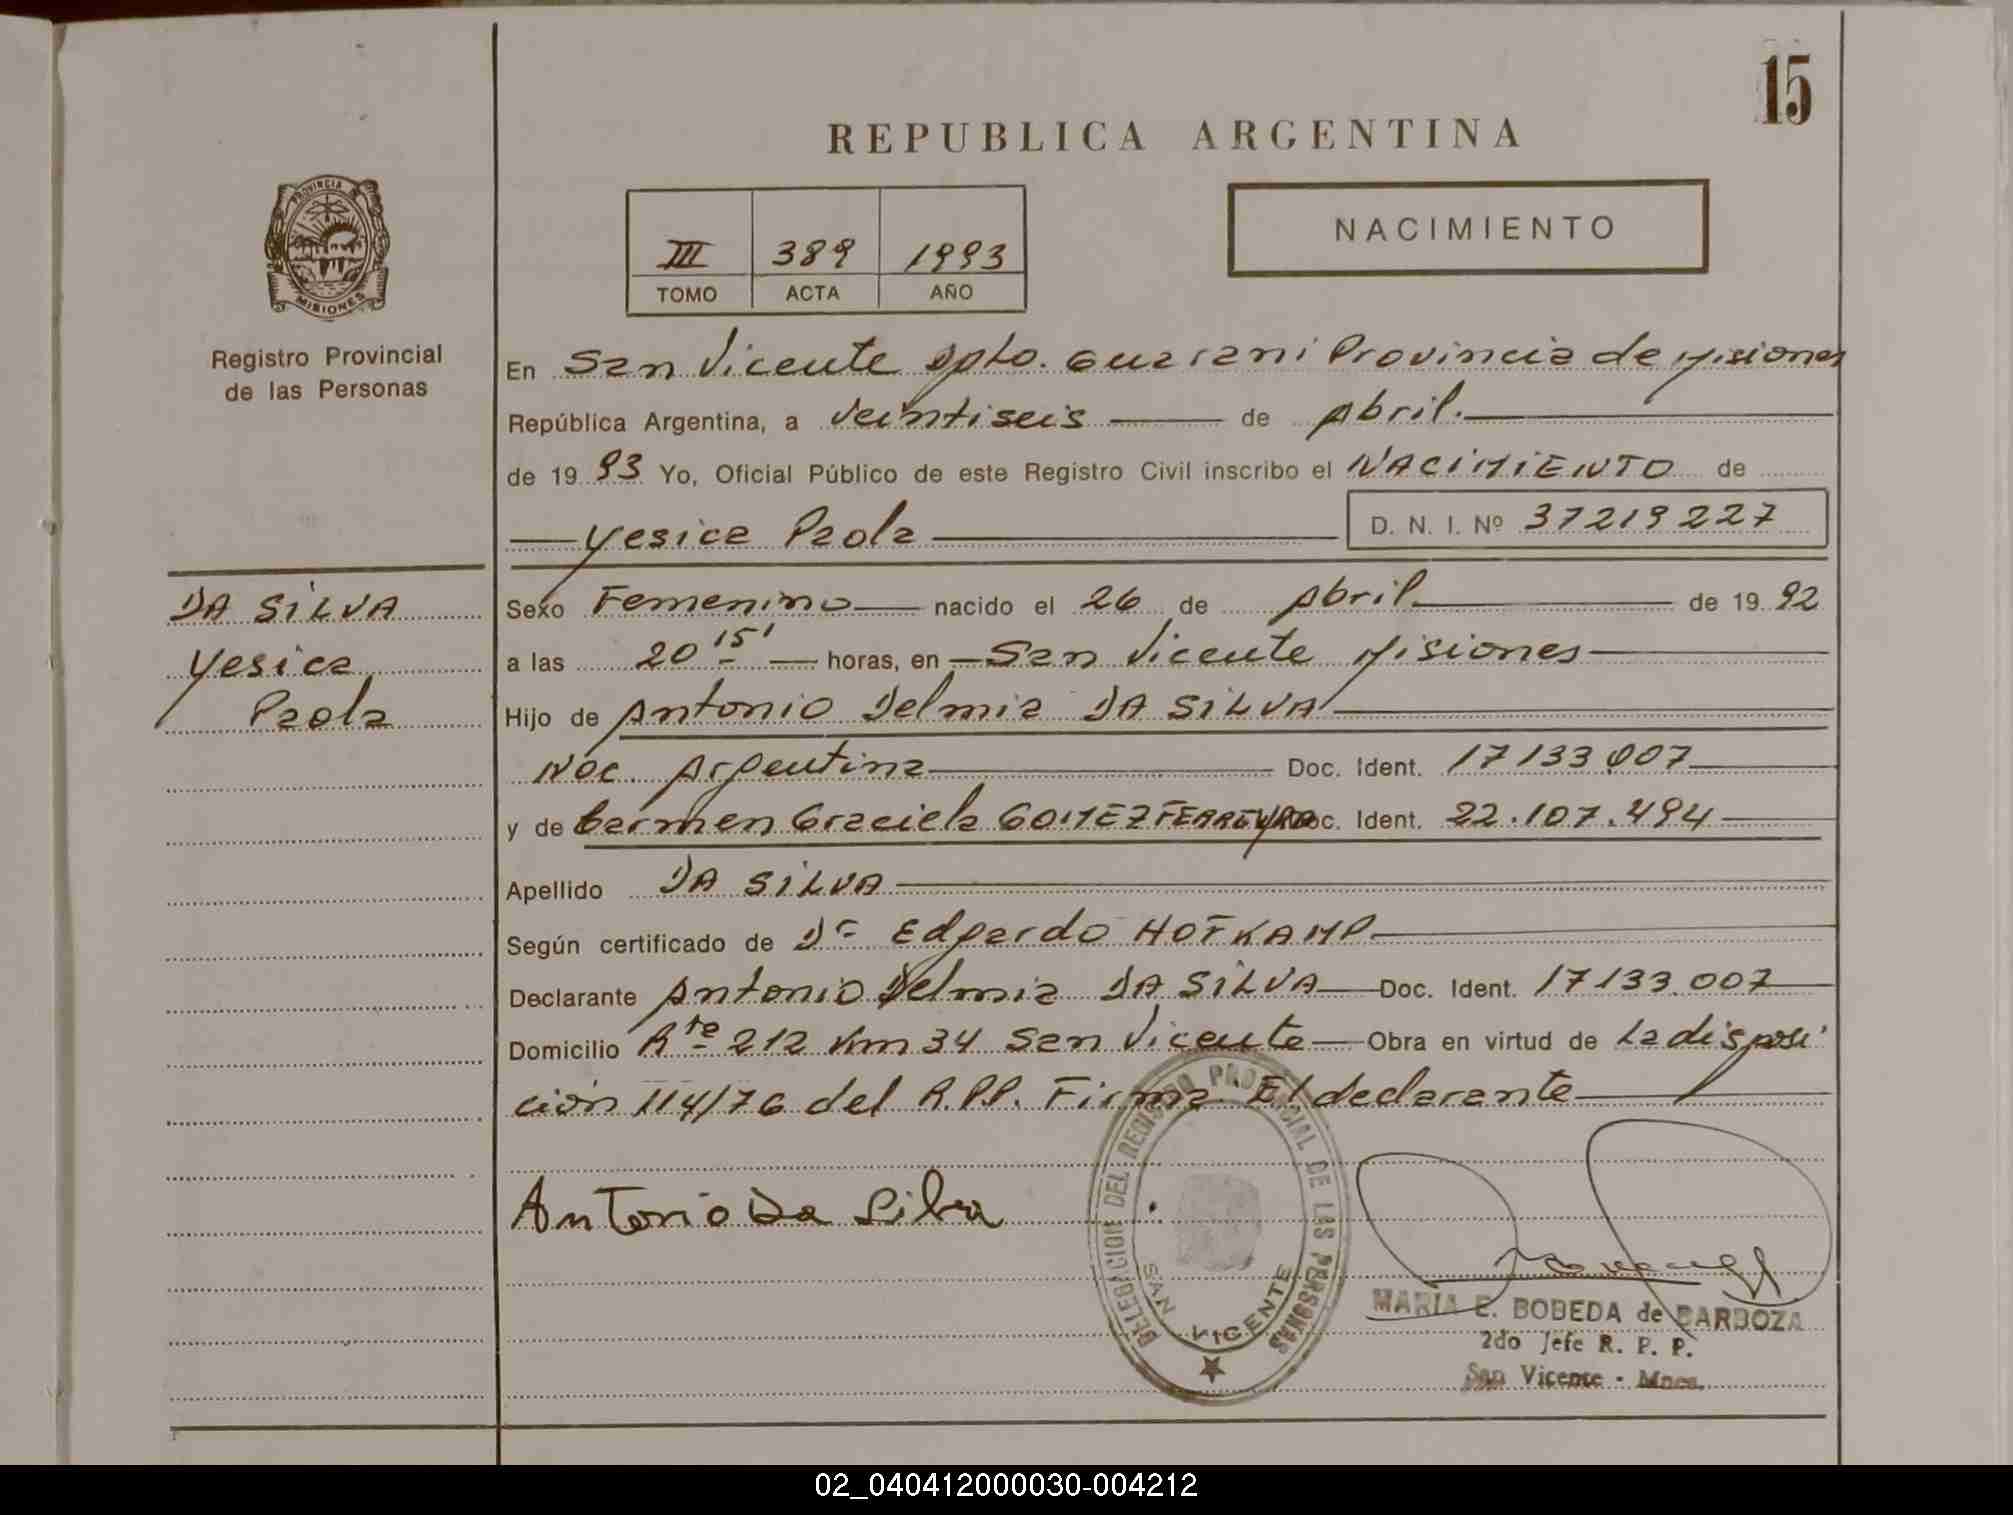 15
REPUBLICA ARGENTINA
PROVINCIA
MISIONES
Registro Provincial
de las Personas
III 389 1993
TOMO ACTA AÑO
NACIMIENTO
En San Vicente Dpto. Guarani Provincia de Misiones
República Argentina, a veintiseis de Abril.
de 19 93 Yo, Oficial Público de este Registro Civil inscribo el NACIMIENTO de
Yesica Paola D. N. I. Nº 37219227
DA SILVA
Yesica
Paola
Sexo Femenino nacido el 26 de Abril de 19 92
a las 20 15' horas, en San Vicente Misiones
Hijo de Antonio Delmia DA SILVA
Nac. Argentina Doc. Ident. 17133.007
y de Carmen Graciela GOMEZ FERREYRA Doc. Ident. 22.107.494
Apellido DA SILVA
Según certificado de Dr Edgardo HOFKAMP
Declarante Antonio Delmia DA SILVA Doc. Ident. 17133.007
Domicilio Rta 212 Km 34 San Vicente Obra en virtud de La disposi
ción 114/76 del R.P.P. Firma El declarante
Antonio Da Silva
DELEGACION DEL REGISTRO PROVINCIAL DE LAS PERSONAS
SAN VICENTE
MARIA E. BOBEDA de BARBOZA
2do Jefe R. P. P.
San Vicente - Mnes.
02_040412000030-004212